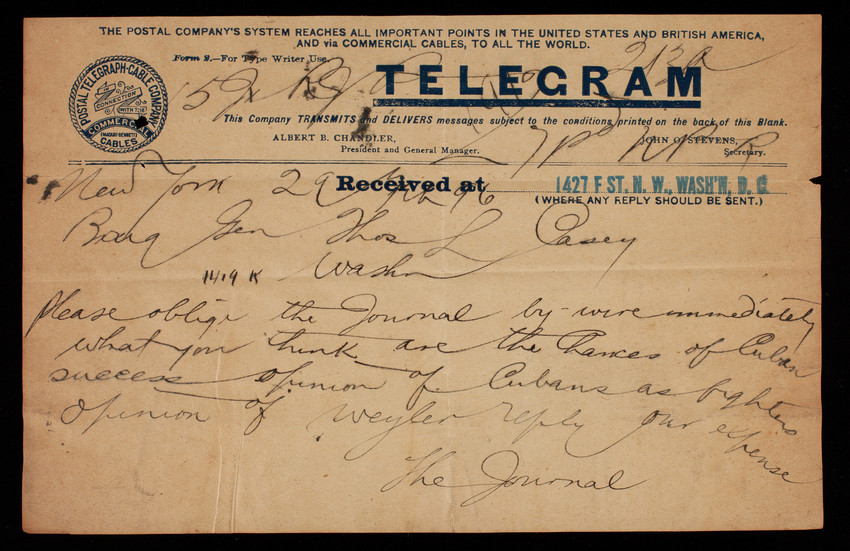 THE POSTAL COMPANY'S SYSTEM REACHES ALL IMPORTANT POINTS IN THE UNITED STATES AND BRITISH AMERICA,
AND via COMMERCIAL CABLES, TO ALL THE WORLD.
Form 2.—For Type Writer Use.
POSTAL TELEGRAPH-CABLE COMPANY
CONNECTION
WITH THE
COMMERCIAL
(MACKAY-BENNETT)
CABLES
TELEGRAM
This Company TRANSMITS and DELIVERS messages subject to the conditions printed on the back of this Blank.
ALBERT B. CHANDLER,
President and General Manager.
JOHN O. STEVENS,
Secretary.
Received at 1427 F ST. N. W., WASH'N, D. C.
(WHERE ANY REPLY SHOULD BE SENT.)
New York 29 96
Gen Thos L Casey
1419 K Washn
Please oblige the Journal by wire immediately
what you think are the Chances of Cuban
success opinion of Cubans as fighters
Opinion of Weyler reply our expense
The Journal